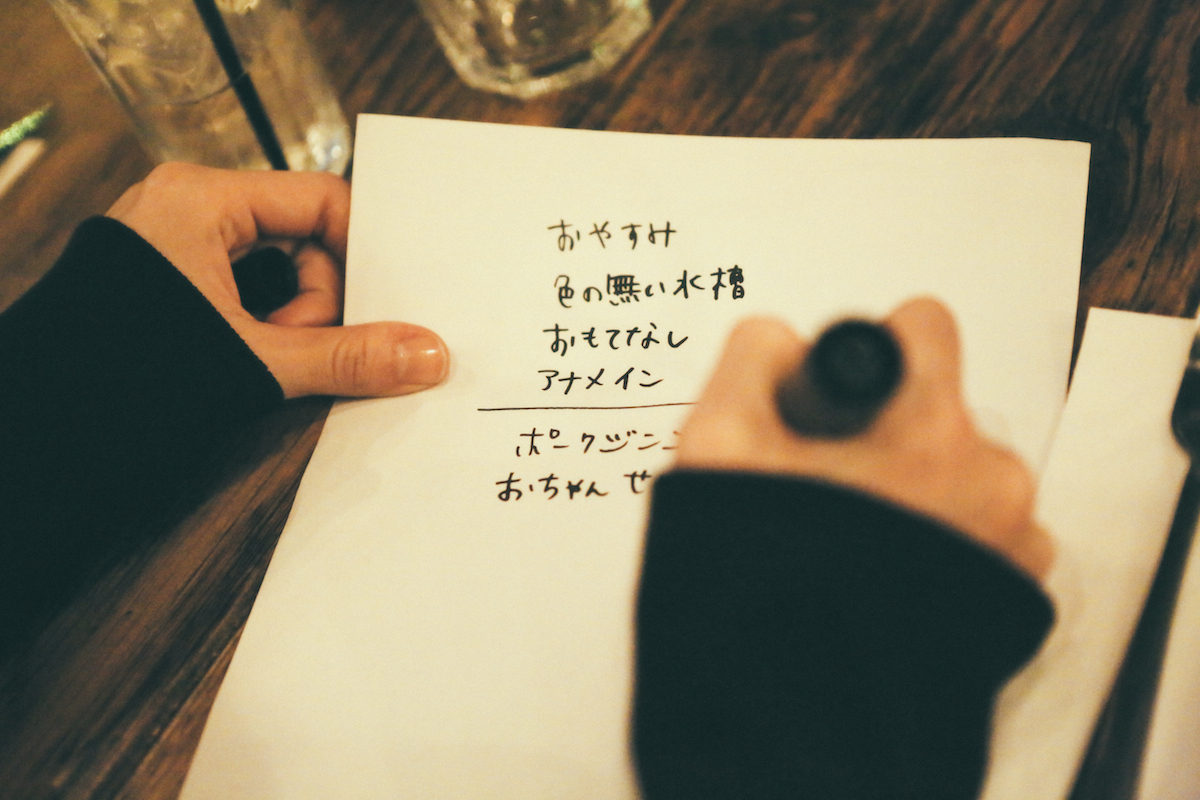 おやすみ
色の無い水槽
おもてなし
アナメイン
ポークジン
おちゃん せ